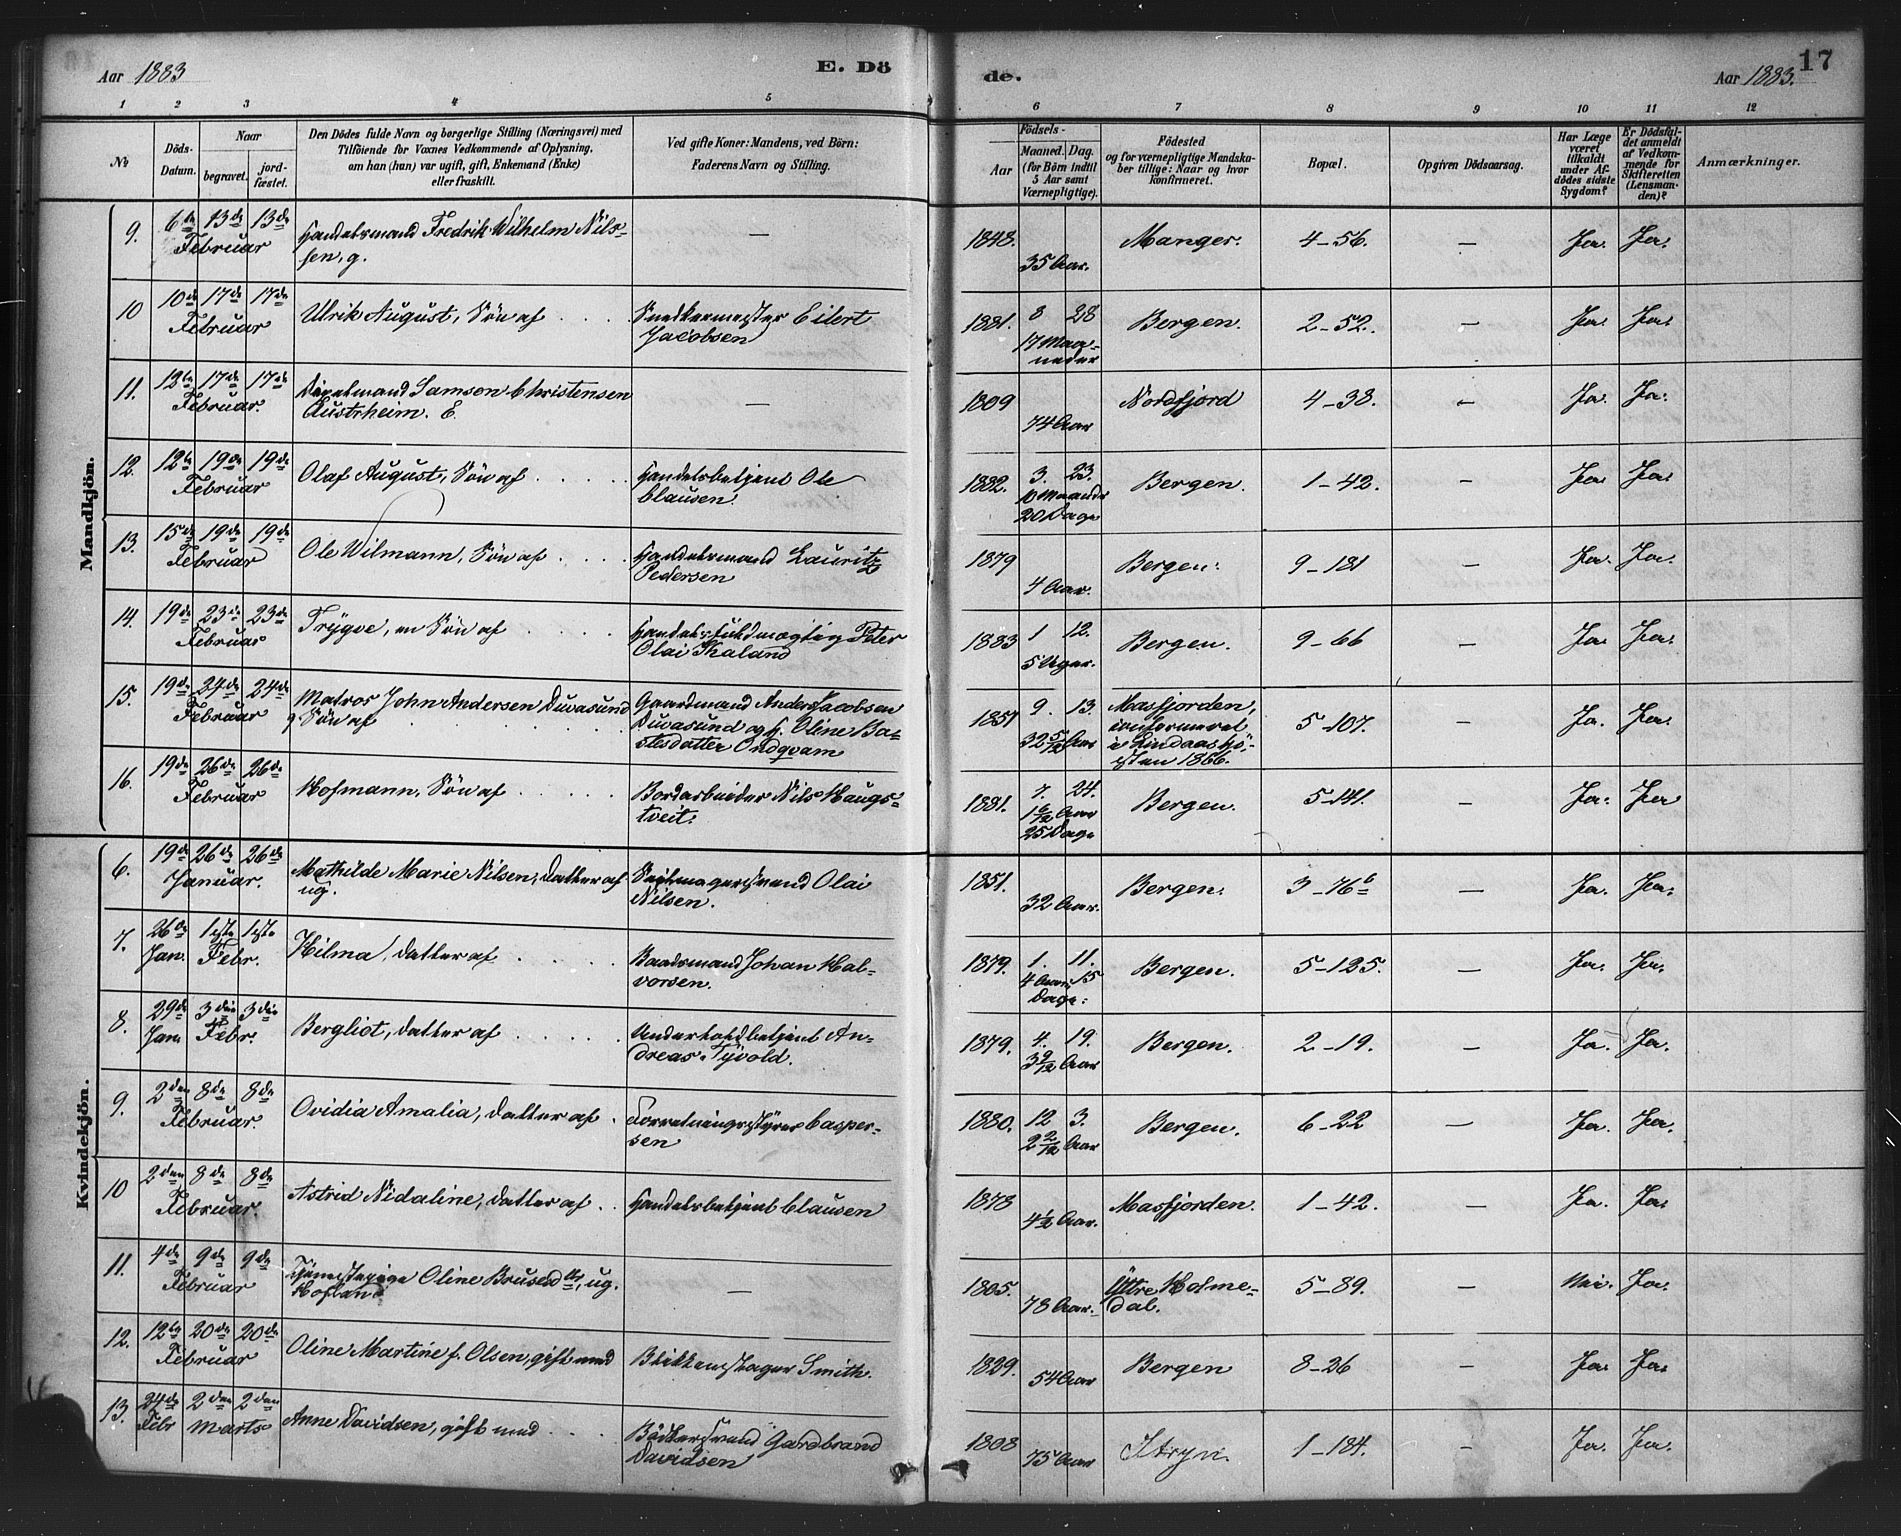 Aar 1883
E. Dö
de.
17
Aar 1883.
1 2 3 4 5 6 7 8 9 10 11 12
No
Döds-
Datum.
Naar
begravet.
jord-
fæstet.
Den Dödes fulde Navn og borgerlige Stilling (Næringsvei) med
Tilföiende for Voxnes Vedkommende af Oplysning,
om han (hun) var ugift, gift, Enkemand (Enke)
eller fraskilt.
Ved gifte Koner: Mandens, ved Börn:
Faderens Navn og Stilling.
Födsels-
Aar
Maaned. Dag.
(for Börn indtil
5 Aar samt
Værnepligtige).
Födested
og for værnepligtige Mandska-
ber tillige: Naar og hvor
konfirmeret.
Bopæl.
Opgiven Dödsaarsag.
Har Læge
været
tilkaldt
under Af-
dödes sidste
Sygdom?
Er Dödsfal-
det anmeldt
af Vedkom-
mende for
Skifteretten
(Lensman-
den)?
Anmærkninger.
Mandkjön.
9. 6te 13de 13de Handelsmand Fredrik Wilhelm Nils- — 1848. Manger. 4–56. — Ja. Ja.
Februar sen, g. 35 Aar.
10 10de 17de 17de Ulrik August, Sön af . . . . Snedkermester Eilert 1881. 8 28 Bergen. 2–52. — Ja. Ja.
Februar Jacobsen 17 Maa-
neder
11. 12te 17de 17de Samson Christensen — 1809 Nordfjord 4–38. — Ja. Ja.
Februar. Austrheim. E. 74 Aar
12. 12te 19de 19de Olaf August, Sön af . . . . . Handelsbetjent Ole 1882. 3. 23. Bergen. 1–42. — Ja. Ja.
Februar Clausen. 10 Maaneder
20 Dage
13. 15de 19de 19de Ole Wilmann, Sön af . . . . Handelsmand Lauritz 1879 Bergen. 9–181 — Ja. Ja.
Februar Pedersen 4 Aar.
14. 19de 23de 23de Trygve, en Sön af . . . . . Handelsfuldmægtig Peter 1883 1 12. Bergen. 9–66 — Ja. Ja.
Februar Olai Skaland 5 Uger.
15. 19de 24de 24de Matros John Andersen Duvasund Gaardmand Anders Jacobsen 1857 9. 13. Masfjorden, 5–107. — Ja. Ja.
Februar Sön af Duvasund og h. Oline Ba- 32 5/12 Aar confirmeret
stesdatter Ondqvam i Lindaas Hö-
sten 1866.
16. 19de 26de 26de Hofmann, Sön af . . . . . Bordarbeider Nils Haugs- 1881. 7. 24. Bergen. 5–141. — Ja. Ja
Februar tveit. 1 6/12 Aar
25 Dage
Kvindekjön.
6. 19de 26de 26de Mathilde Marie Nilsen, Datter af Seilmagersvend Olai 1851. Bergen. 3–76b — Ja. Ja.
Januar. ug. Nilsen. 32 Aar.
7. 26de 1ste 1ste Hilma, Datter af . . . . . Baadsmand Johan Hal- 1879. 1. 11. Bergen. 5–125. — Ja. Ja.
Jan. Febr. vorsen. 4 Aar 15
Dage.
8. 29de 3die 3die Bergliot, Datter af . . . . . Underholdbetjent An- 1879. 4. 19. Bergen. 2–19. — Ja. Ja.
Jan. Febr. dreas Tyvold. 3 9/12 Aar
9. 2den 8de 8de Ovidia Amalia, Datter af . Forretningsstyrer Casper- 1880. 12 3. Bergen. 6–22 — Ja. Ja.
Februar. sen 2 2/12 Aar
10 2den 8de 8de Astrid Nidaline, Datter af . . Handelsbetjent Clausen 1878 Masfjorden. 1–42. — Ja. Ja.
Februar. 4½ Aar.
11. 4de 9de 9de Tjenestepige Oline Brusend.tr, ug. — 1805. Yttre Holme- 5–89. — Nei. Ja.
Februar Hofland 78 Aar. dal.
12. 12te 20de 20de Oline Martine f. Olsen, gift med Blikkenslager Smith. 1829. Bergen 8–26 — Ja. Ja.
Februar 54 Aar
13. 24de 2den 2den Anne Davidsen, gift med . . . . Bödkersvend Gardbrand 1808 Stryn. 1–184. — Ja. Ja.
Febr Marts Davidsen 75 Aar